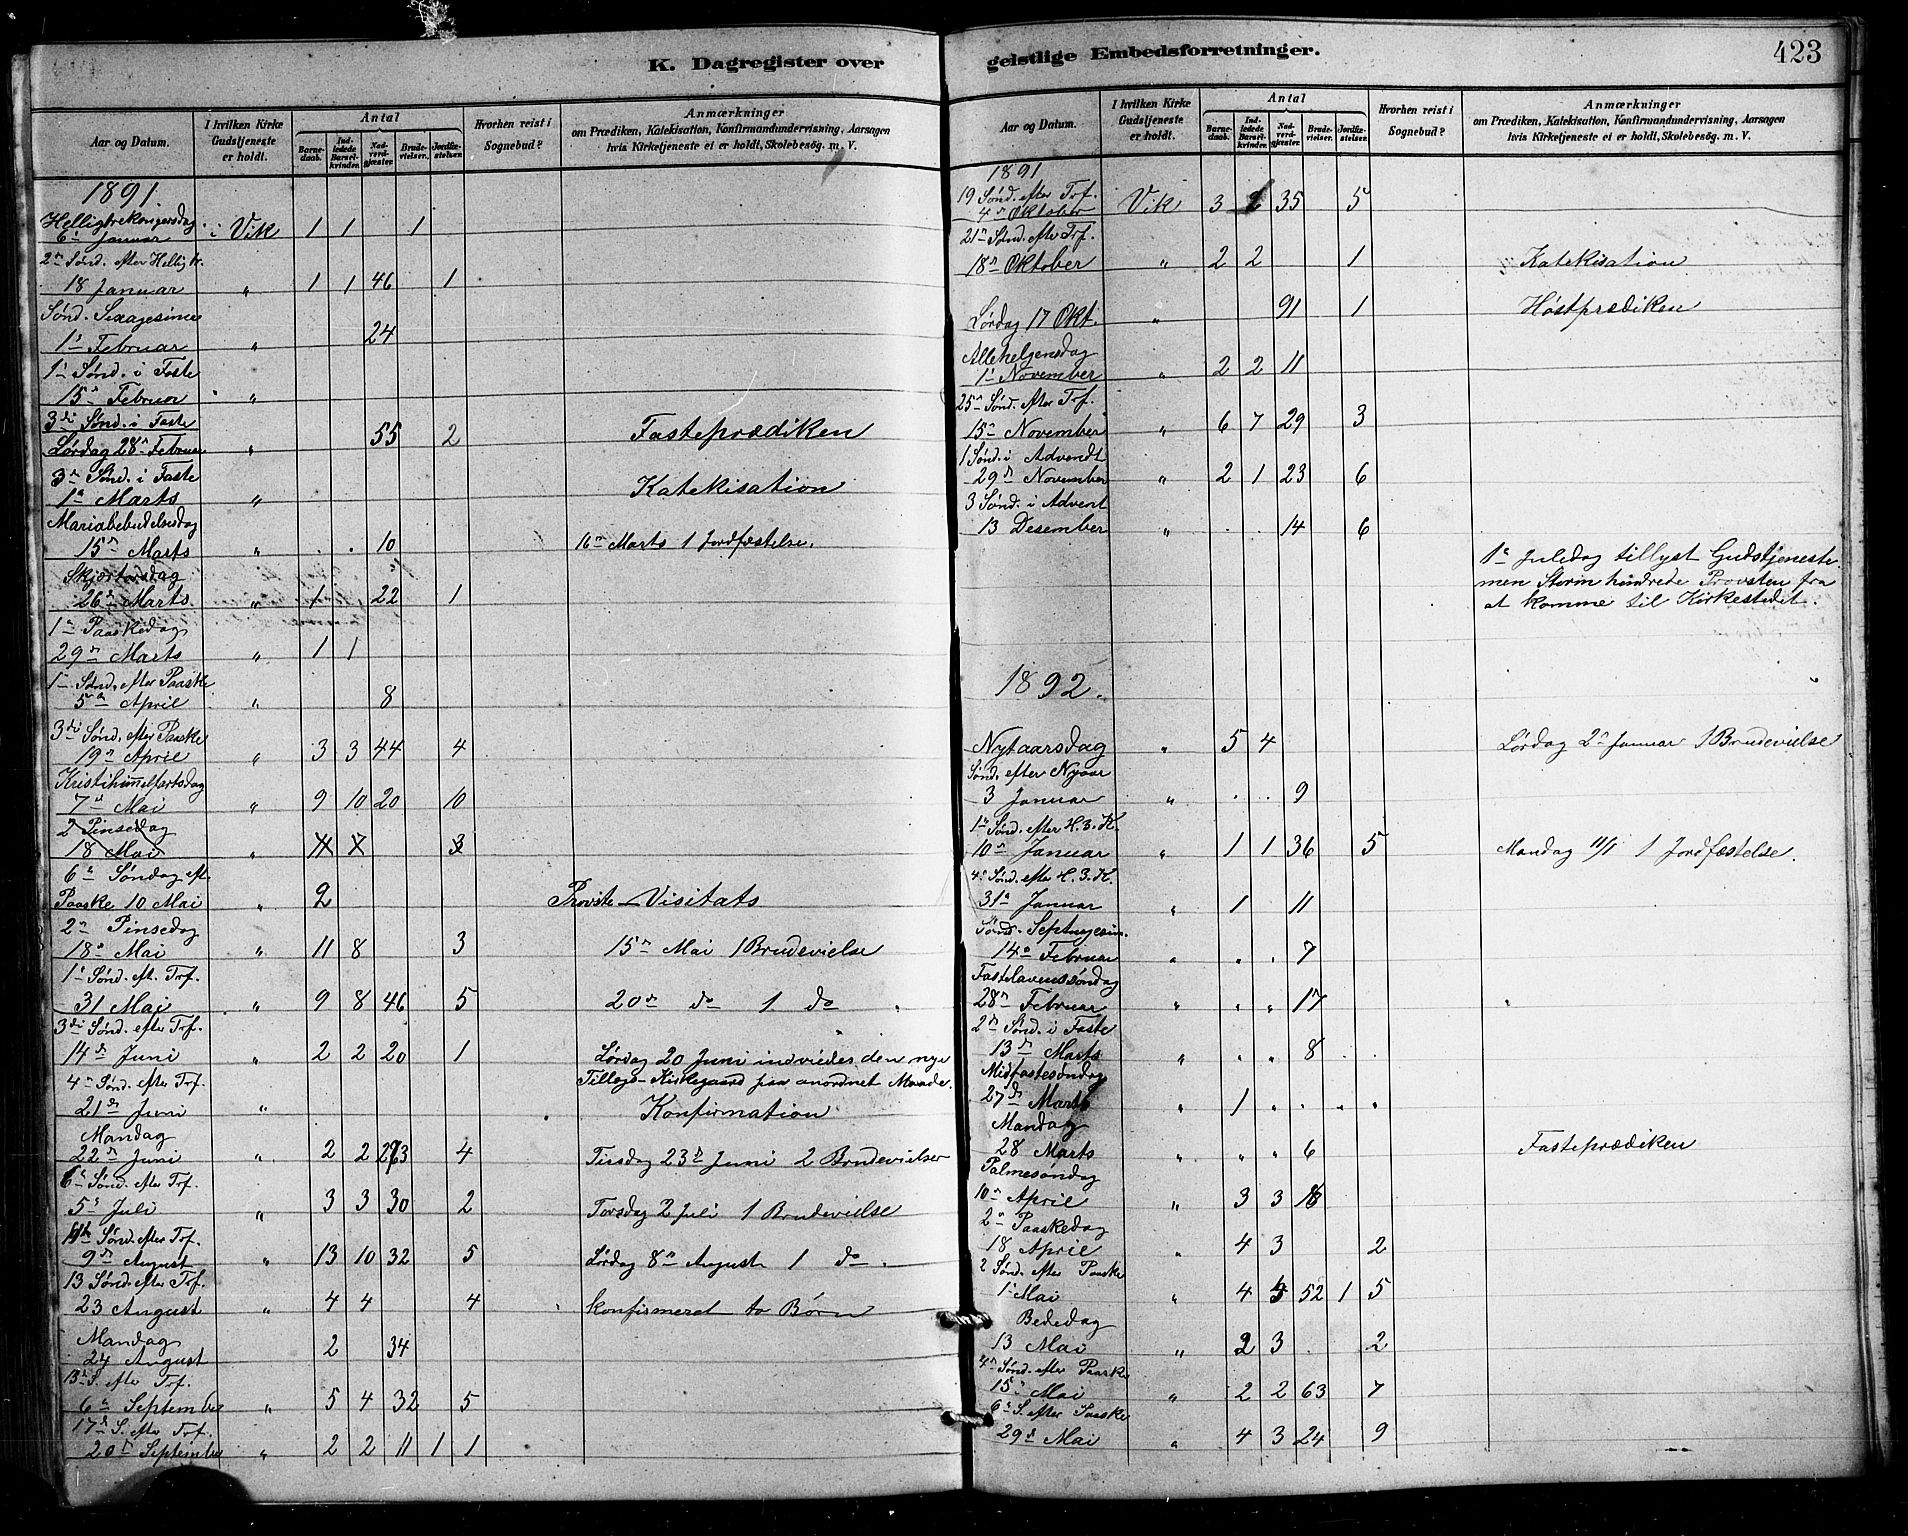 K. Dagregister over
Aar og Datum.
I hvilken Kirke Gudstjeneste er holdt.
Antal
Barnedaab.
Indledede Barselkvinder.
Nadverdgjæster.
Brudevielser.
Jordfæstelser.
Hvorhen reist i Sognebud?
Anmærkninger
om Prædiken, Katekisation, Konfirmandundervisning, Aarsagen
hvis Kirketjeneste ei er holdt, Skolebesög m. V.
1891.
Helligtrekongersdag
6te Januar i Vik 1 1 1
2n Sønd. efter Hellig tr.
18 Januar " 1 1 46 1
Sønd. Sexagesima
1s Februar " 24
1s Sønd. i Faste
15n Februar "
3di Sønd. i Faste
Lørdag 28n Februar " 55 2 Fasteprædiken
3n Sønd. i Faste
1s Marts " Katekisation
Mariabebudelsesdag
15n Marts " . . 10 16n Marts 1 Jordfæstelse.
Skjærtorsdag
26n Marts " 1 22 1
1s Paaskedag
29n Marts " 1 1
1s Sønd. efter Paaske
5n April " 8
3di Sønd. efter Paaske
19n April " 3 3 44 4
Kristihimmelfartsdag
7n Mai " 9 10 20 10
2 Pinsedag
18 Mai " 3
6n Søndag eft.
Paaske 10 Mai " 2 Provste-Visitats
2n Pinsedag
18n Mai " 11 8 3 15n Mai 1 Brudevielse
1s Sønd. eft. Trf.
31 Mai " 9 8 46 5 20n do 1 do
3di Sønd. efter Trf.
14n Juni " 2 2 20 1 Lørdag 20 Juni indviedes den nye
4n Sønd. efter Trf. Tillægs-Kirkegaard paa anordnet Maade.
21n Juni " Konfirmation
Mandag
22n Juni " 2 2 4 Tirsdag 23n Juni 2 Brudevielser
6n Sønd. efter Trf.
5n Juli " 3 3 30 2 Torsdag 2 Juli 1 Brudevielse
Sønd. efter Trf.
9n August " 13 10 32 5 Lørdag 8n August 1 do.
13 Sønd. efter Trf.
23 August " 4 4 4 Konfirmeret to Børn
Mandag
24 August 2 34
S. efter Trf.
6n September " 5 4 32 5
17n S. efter Trf.
20n September " 2 2 11 1 1
geistlige Embedsforretninger.
423
Aar og Datum.
I hvilken Kirke Gudstjeneste er holdt.
Antal
Barnedaab.
Indledede Barselkvinder.
Nadverdgjæster.
Brudevielser.
Jordfæstelser.
Hvorhen reist i Sognebud?
Anmærkninger
om Prædiken, Katekisation, Konfirmandundervisning, Aarsagen
hvis Kirketjeneste ei er holdt, Skolebesög m. V.
1891
19 Sønd. efter Trf.
4n Oktober Vik 3 35 5
21n Sønd. efter Trf.
18n Oktober " 2 2 1 Katekisation
Lørdag 17 Okt. " 91 1 Høstprædiken
Allehelgensdag
1s November " 2 2 11
25n Sønd. efter Trf.
15n November " 6 7 29 3
1 Sønd. i Advendt
29n November " 2 1 23 6
3 Sønd. i Advent
13 Desember " . . 14 6
1s Juledag tillyst Gudstjeneste
men Storm hindrede Provsten fra
at komme til Kirkestedet.
1892.
Nytaarsdag " 5 4 Lørdag 2n Januar 1 Brudevielse
Sønd. efter Nyaar
3 Januar " . . 9
1s Sønd. efter H. 3. K.
10n Januar " 1 1 36 5 Mandag 11/1 1 Jordfæstelse.
4n Sønd. efter H. 3. K.
31s Januar " 1 11
Sønd. Septuagesim.
14n Februar " " " 7
Fastelavenssøndag
28n Februar " " " 17
2n Sønd. i Faste
13n Marts " " " 8
Midfastesøndag
27n Marts " 1 " . . "
Mandag
28 Marts " " " 6 Fasteprædiken
Palmesøndag
10n April " 3 3
2n Paaskedag
18 April " 4 3 2
2 Sønd. efter Paaske
1s Mai " 4 52 1 5
Bededag
13 Mai " 2 3 . 2
4n Sønd. efter Paaske
15n Mai " 2 2 63 7
6n S. efter Paaske
29n Mai " 4 3 24 9